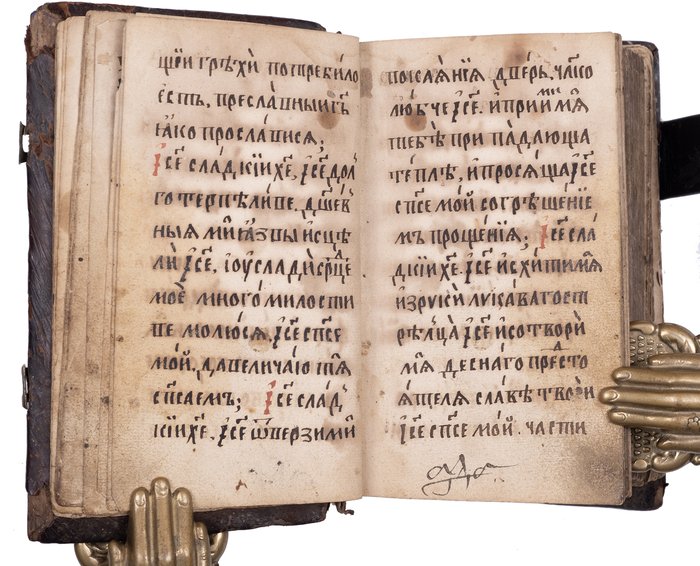 щеи грѣхи потребило
есть, преславныи гь҃
ꙗко прославися;
І҆се҃ сладкїи хе҃, і҆се҃ дол
готерпѣливе, дш҃ев
ныя ми язвы исцѣ
ли і҆се҃, і оуслади срд҃це
мое многомилости
ве молюся, і҆се҃ спс҃е
мой, да величаю тя
спс҃аемъ; І҆се҃ слад
кїи хе҃, і҆се҃ ѿверзи ми
покаянїя дверь, чл҃ко
любче і҆се҃, и приими мя
тебѣ припадающа
теплѣ, и просяща і҆се҃
спс҃е мой согрѣшенїе
мъ прощенїя; І҆се҃ сла
дкїи хе҃. і҆се҃ исхити мя
из руки лукаваго ст
рѣлца і҆се҃ и сотвори
мя деснаго предсто
ятеля славѣ твоеи
і҆се҃ спс҃е мой. части